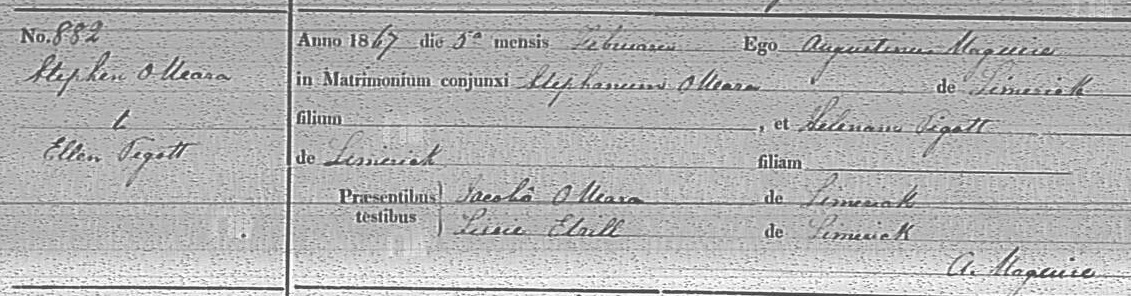 No. 882
Stephen O Meara
&
Ellen Pigott
Anno 1867 die 5ª mensis Februarii Ego Augustinus Maguire
in Matrimonium conjunxi Stephanum O Meara de Limerick
filium , et Helenam Pigott
de Limerick filiam
Præsentibus testibus } Jacobô O Meara de Limerick
Lizzie de Limerick
A. Maguire